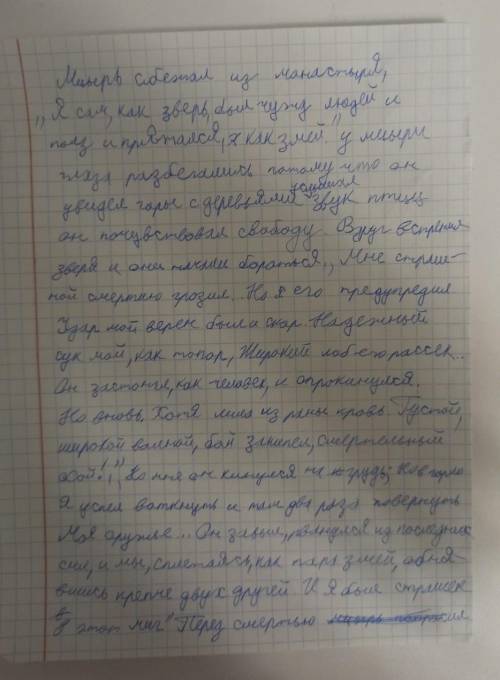 Мцырь сбежал из манастыря,
„Я сам, как зверь, был чужд людей и
полз и прятался, как змей." у мцыри
глаза разбегались потому что он
увидел горы с деревьями услышал звук птиц
он почувствовал свободу. Вдруг встретил
зверя и они начали бороться. „Мне страш-
ной смертию грозил. Но я его предупредил
Удар мой верен был и скор. Надежный
сук мой, как топор, Широкий лоб его рассек...
Он застонал, как человек, и опрокинулся.
Но вновь, Хотя лила из раны кровь Густой,
широкой волной, бой закипел, смертельный
бой!", „Ко мне он кинулся на грудь; Но в горло
Я успел воткнуть и там два раза повернуть
Моё оружье... Он завыл, рванулся из последних
сил, и мы, сплетаясь, как пара змей, обня-
вшись крепче двух друзей. И Я был страшен
в этот миг" Перед смертью